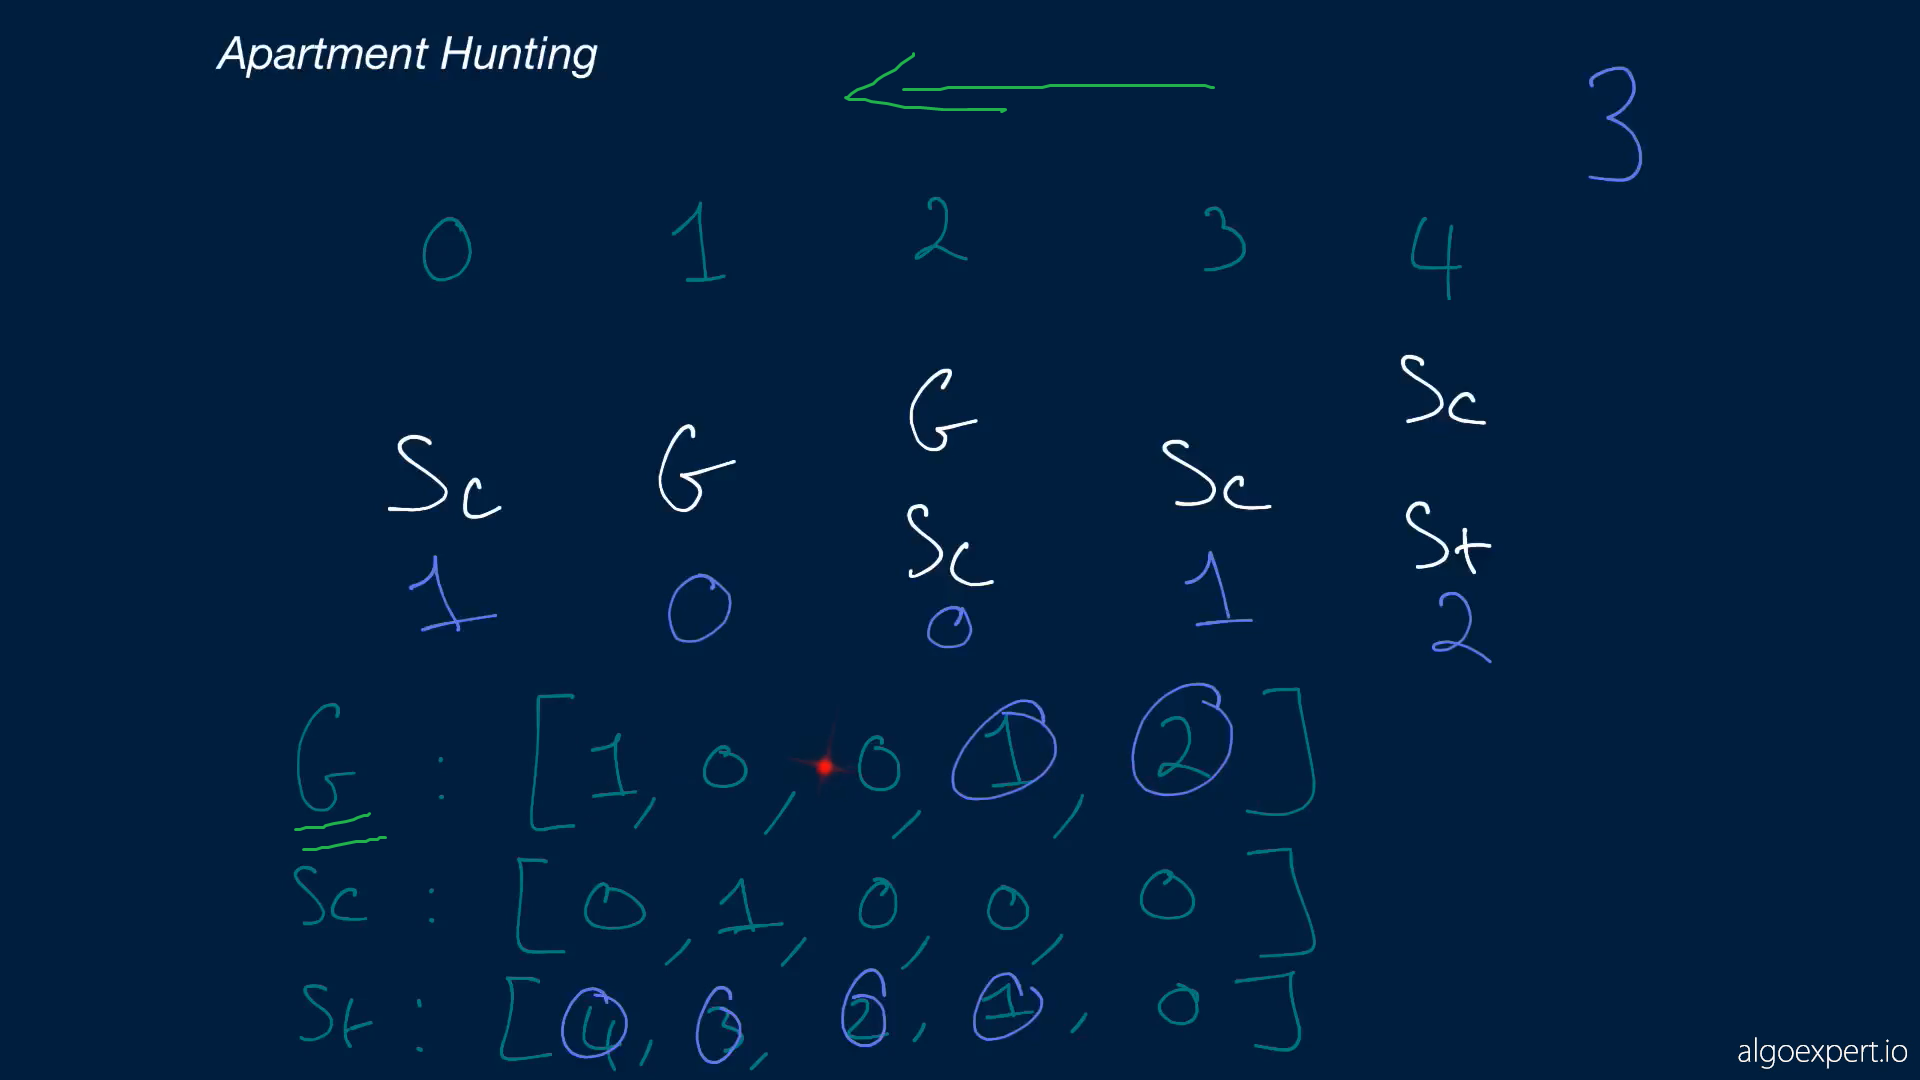 Apartment Hunting
3
0 1 2 3 4
G Sc
Sc G Sc Sc St
1 0 0 1 2
G : [1, 0, 0, 1, 2]
Sc : [0, 1, 0, 0, 0]
St : [4, 3, 2, 1, 0]
algoexpert.io